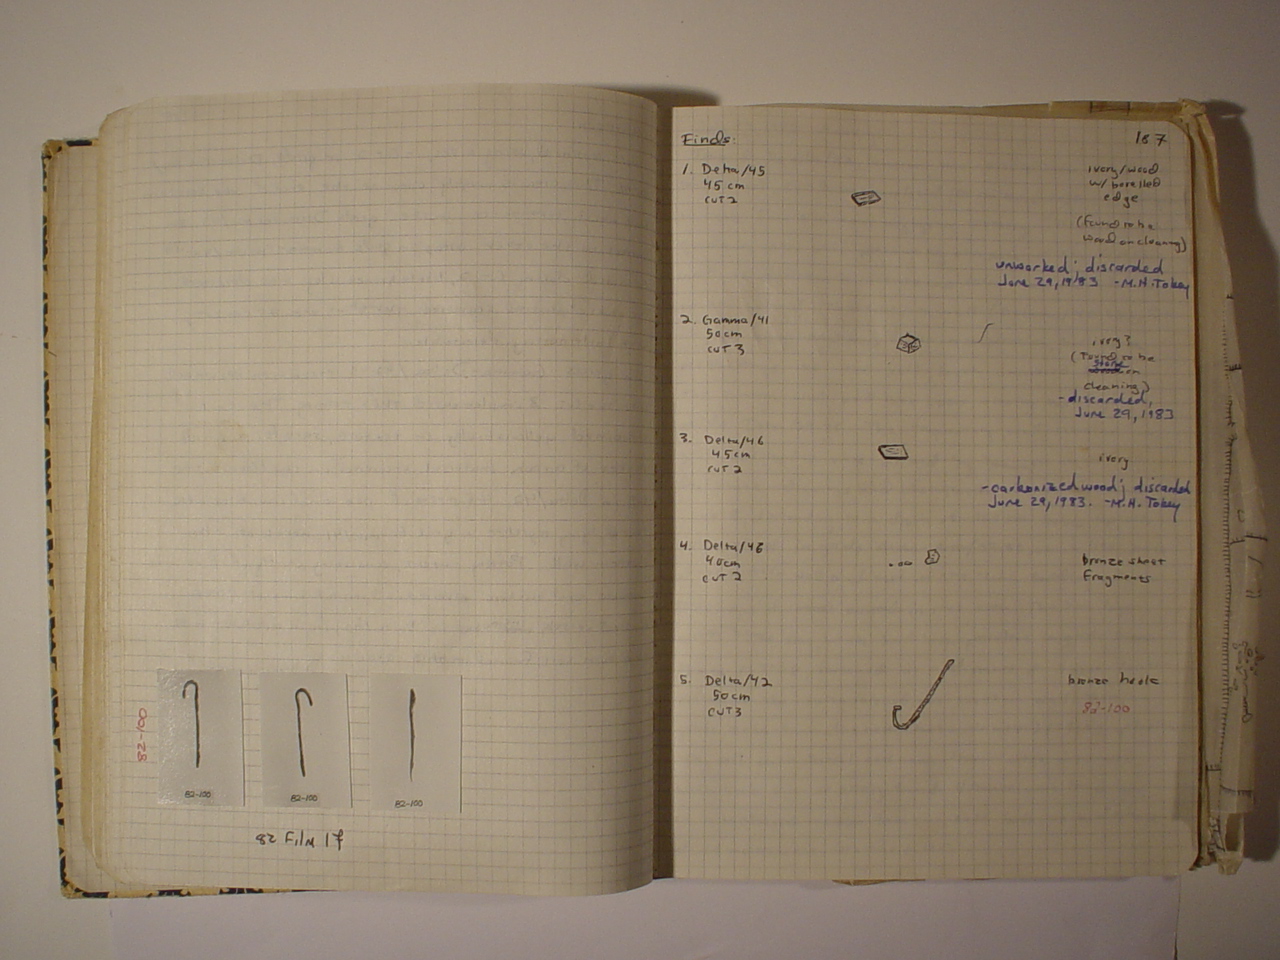 82-100
82-100
82-100
82-100
82 Film 17
Finds:
187
1. Delta/45
45 cm
cut 2
ivory/wood
w/ bevelled
edge
(found to be
wood on cleaning)
unworked; discarded
June 29, 1983 -M.H. Tokay
2. Gamma/41
50 cm
cut 3
ivory?
(found to be
stone on
cleaning)
-discarded,
June 29, 1983
3. Delta/46
45 cm
cut 2
ivory
-carbonized wood; discarded
June 29, 1983. -M.H. Tokay
4. Delta/46
40 cm
cut 2
bronze sheet
fragments
5. Delta/42
50 cm
cut 3
bronze hook
82-100